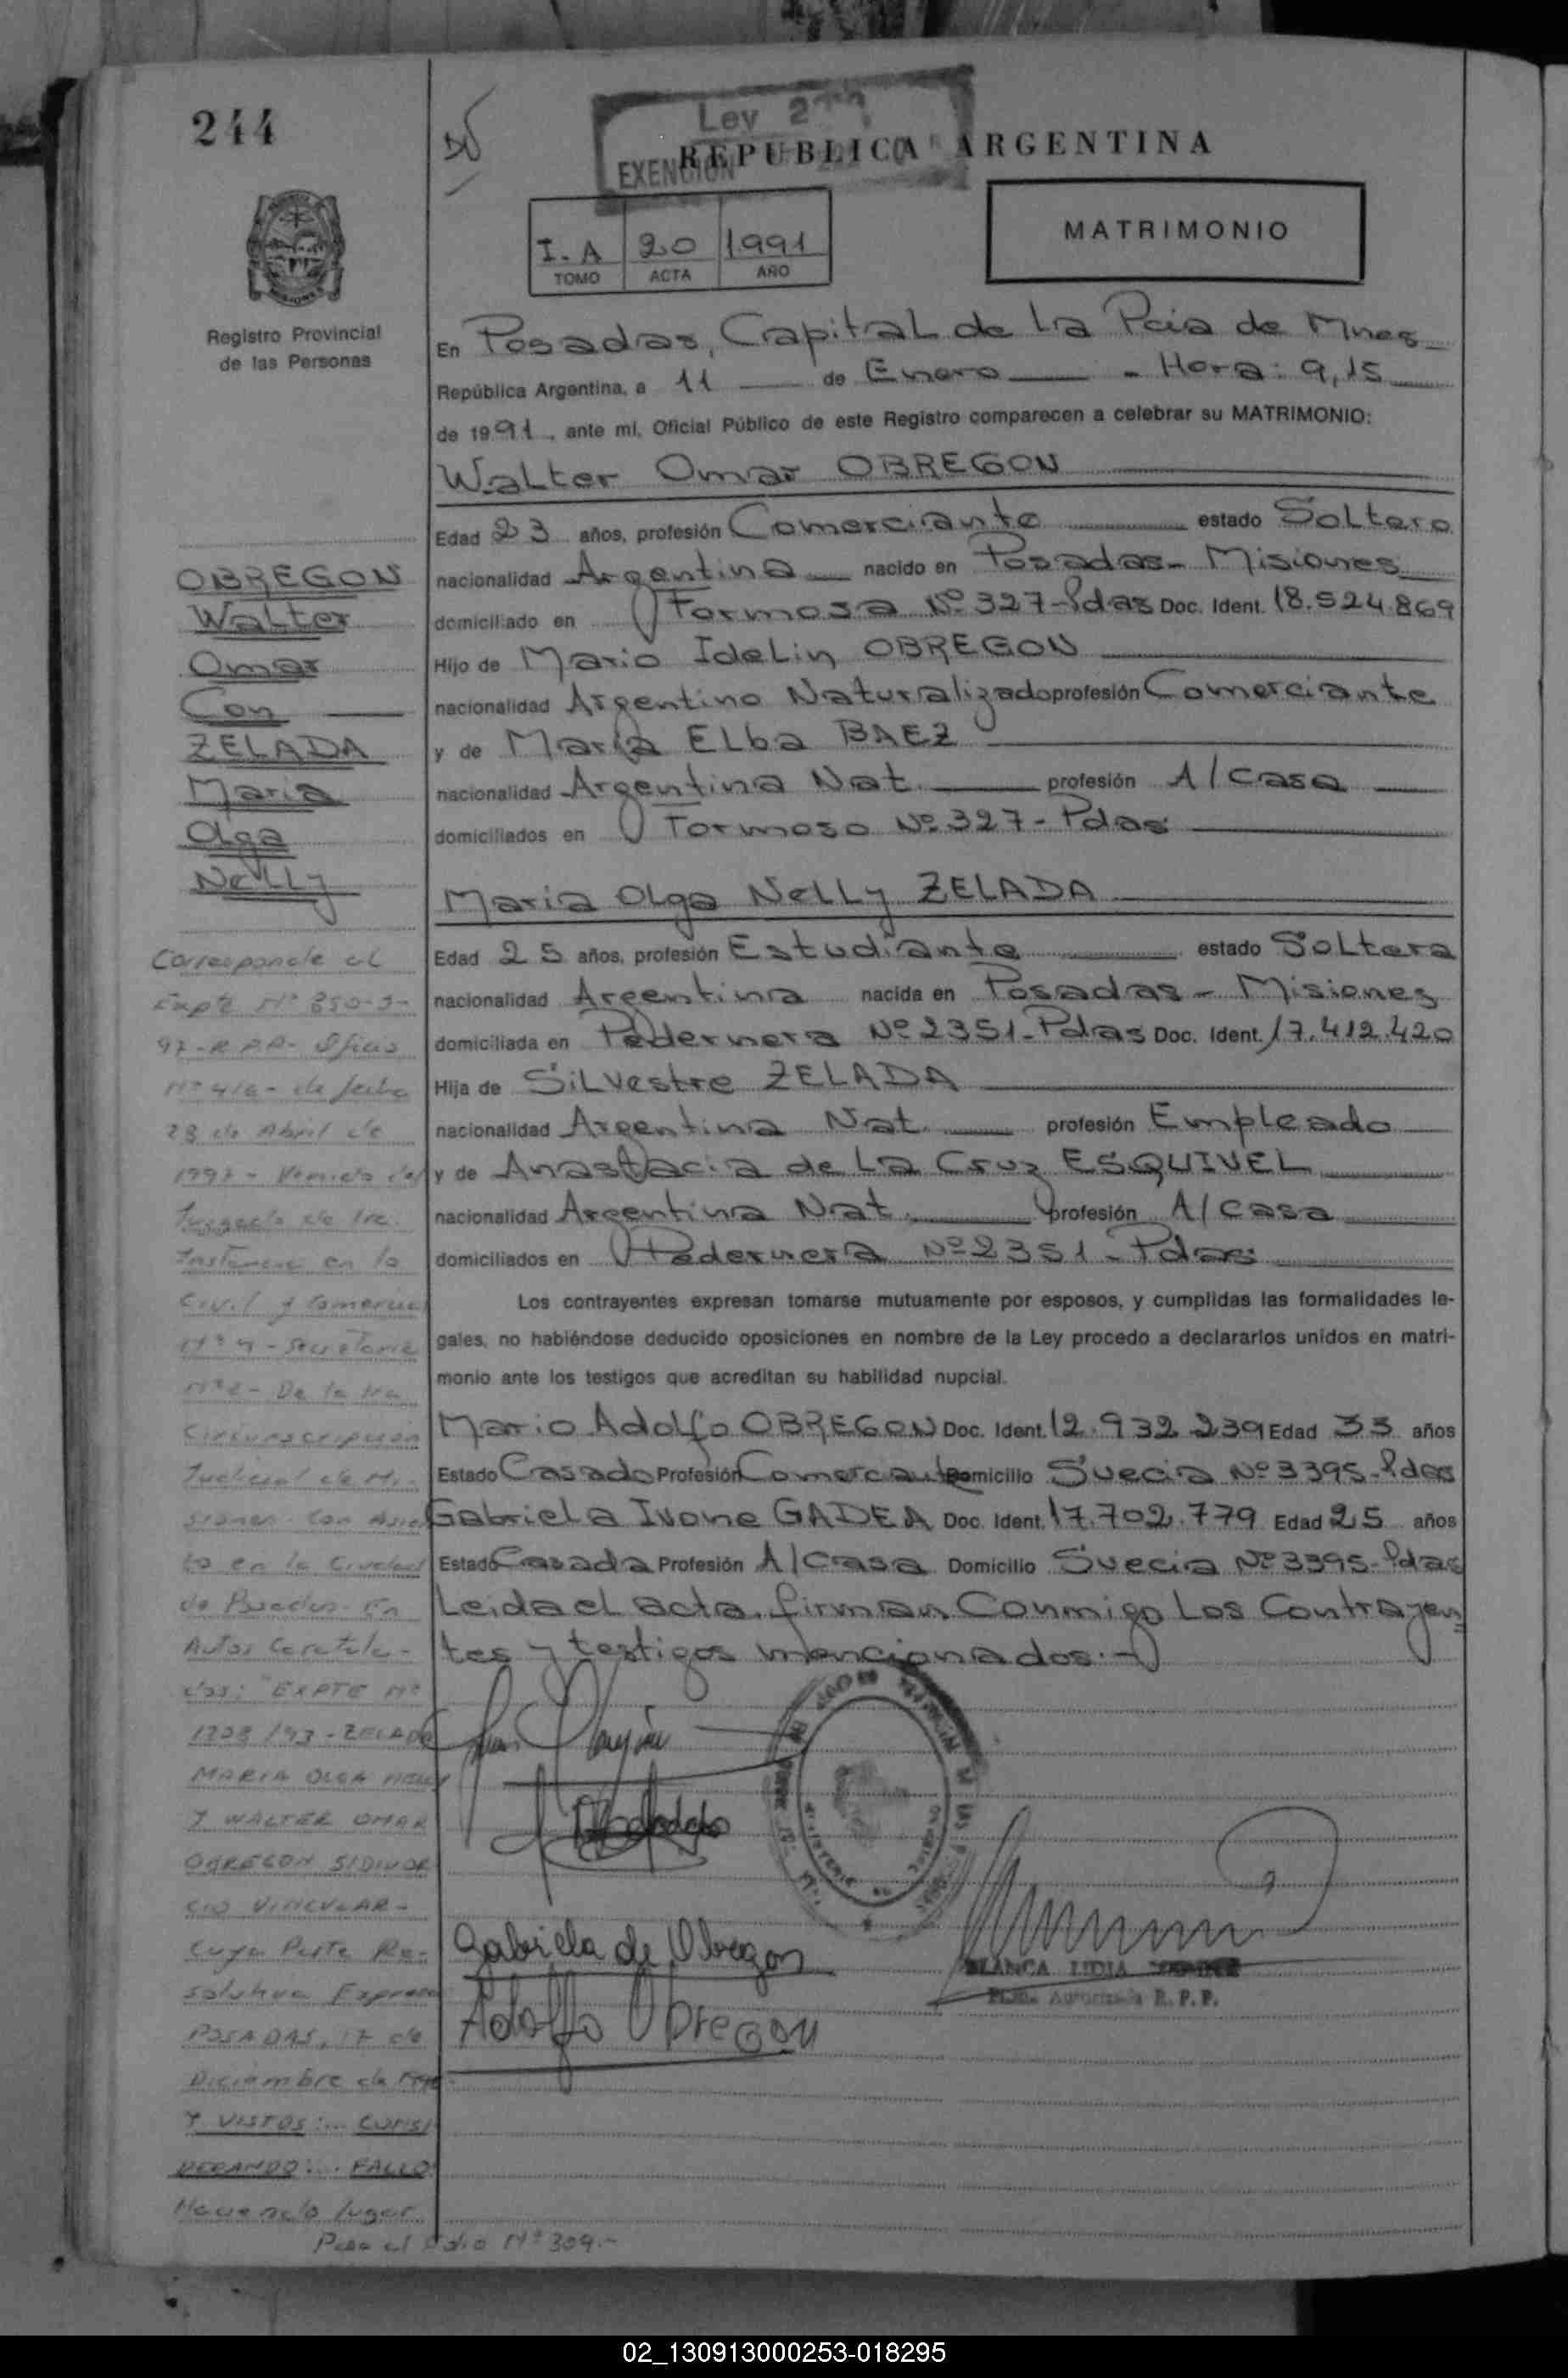 244
Ley 2
EXENCION
REPUBLICA ARGENTINA
MATRIMONIO
I. A 20 1991
TOMO ACTA AÑO
Registro Provincial
de las Personas
En Posadas, Capital de La Pcia de Mnes
República Argentina, a 11 de Enero - Hora: 9,15
de 1991, ante mí, Oficial Público de este Registro comparecen a celebrar su MATRIMONIO:
Walter Omar OBREGON
Edad 23 años, profesión Comerciante estado Soltero
nacionalidad Argentina nacido en Posadas - Misiones
domiciliado en Formosa Nº 327 - Pdas Doc. Ident. 18.524.869
Hijo de Mario Idelin OBREGON
nacionalidad Argentino Naturalizado profesión Comerciante
y de María ELba BAEZ
nacionalidad Argentina Nat. profesión A/casa
domiciliados en Formosa Nº 327 - Pdas
Maria Olga Nelly ZELADA
Edad 25 años, profesión Estudiante estado Soltera
nacionalidad Argentina nacida en Posadas - Misiones
domiciliada en Pedernera Nº 2351 - Pdas Doc. Ident. 17.412.420
Hija de Silvestre ZELADA
nacionalidad Argentina Nat. profesión Empleado
y de Anastacia de La Cruz ESQUIVEL
nacionalidad Argentina Nat. profesión A/casa
domiciliados en Pedernera Nº 2351 - Pdas
Los contrayentes expresan tomarse mutuamente por esposos, y cumplidas las formalidades le-
gales, no habiéndose deducido oposiciones en nombre de la Ley procedo a declararlos unidos en matri-
monio ante los testigos que acreditan su habilidad nupcial.
Mario Adolfo OBREGON Doc. Ident. 12.932.239 Edad 33 años
Estado Casado Profesión Comerciante Domicilio Suecia Nº 3395 - Pdas
Gabriela Ivone GADEA Doc. Ident. 17.702.779 Edad 25 años
Estado Casada Profesión A/casa Domicilio Suecia Nº 3395 - Pdas
Leida el acta, firman Conmigo Los Contrayen
tes y testigos mencionados.-
Gabriela de Obregon
Adolfo Obregon
BLANCA LIDIA
Autorizada R. P. P.
OBREGON
Walter
Omar
Con
ZELADA
Maria
Olga
Nelly
Corresponde al
Expte Nº 350-J-
97-R.P.P- Oficio
Nº 416 - de fecha
28 de Abril de
1997 - Venido del
Juzgado de 1ra.
Instancia en lo
Civil y Comercial
Nº 4 - Secretaria
Nº 2 - De la 1ra
Circunscripcion
Judicial de Mi-
siones - Con Asien
to en la Ciudad
de Posadas - En
Autos Caratula-
dos: "EXPTE Nº
1728/93 - ZELADA
MARIA OLGA NELLY
Y WALTER OMAR
OBREGON S/DIVOR
CIO VINCULAR -
Cuya Parte Re-
solutiva Expresa
POSADAS, 17 de
Diciembre de
Y VISTOS:... CONSI
DERANDO:... FALLO:
Haciendo lugar
Pasa al Folio Nº 309.-
02_130913000253-018295